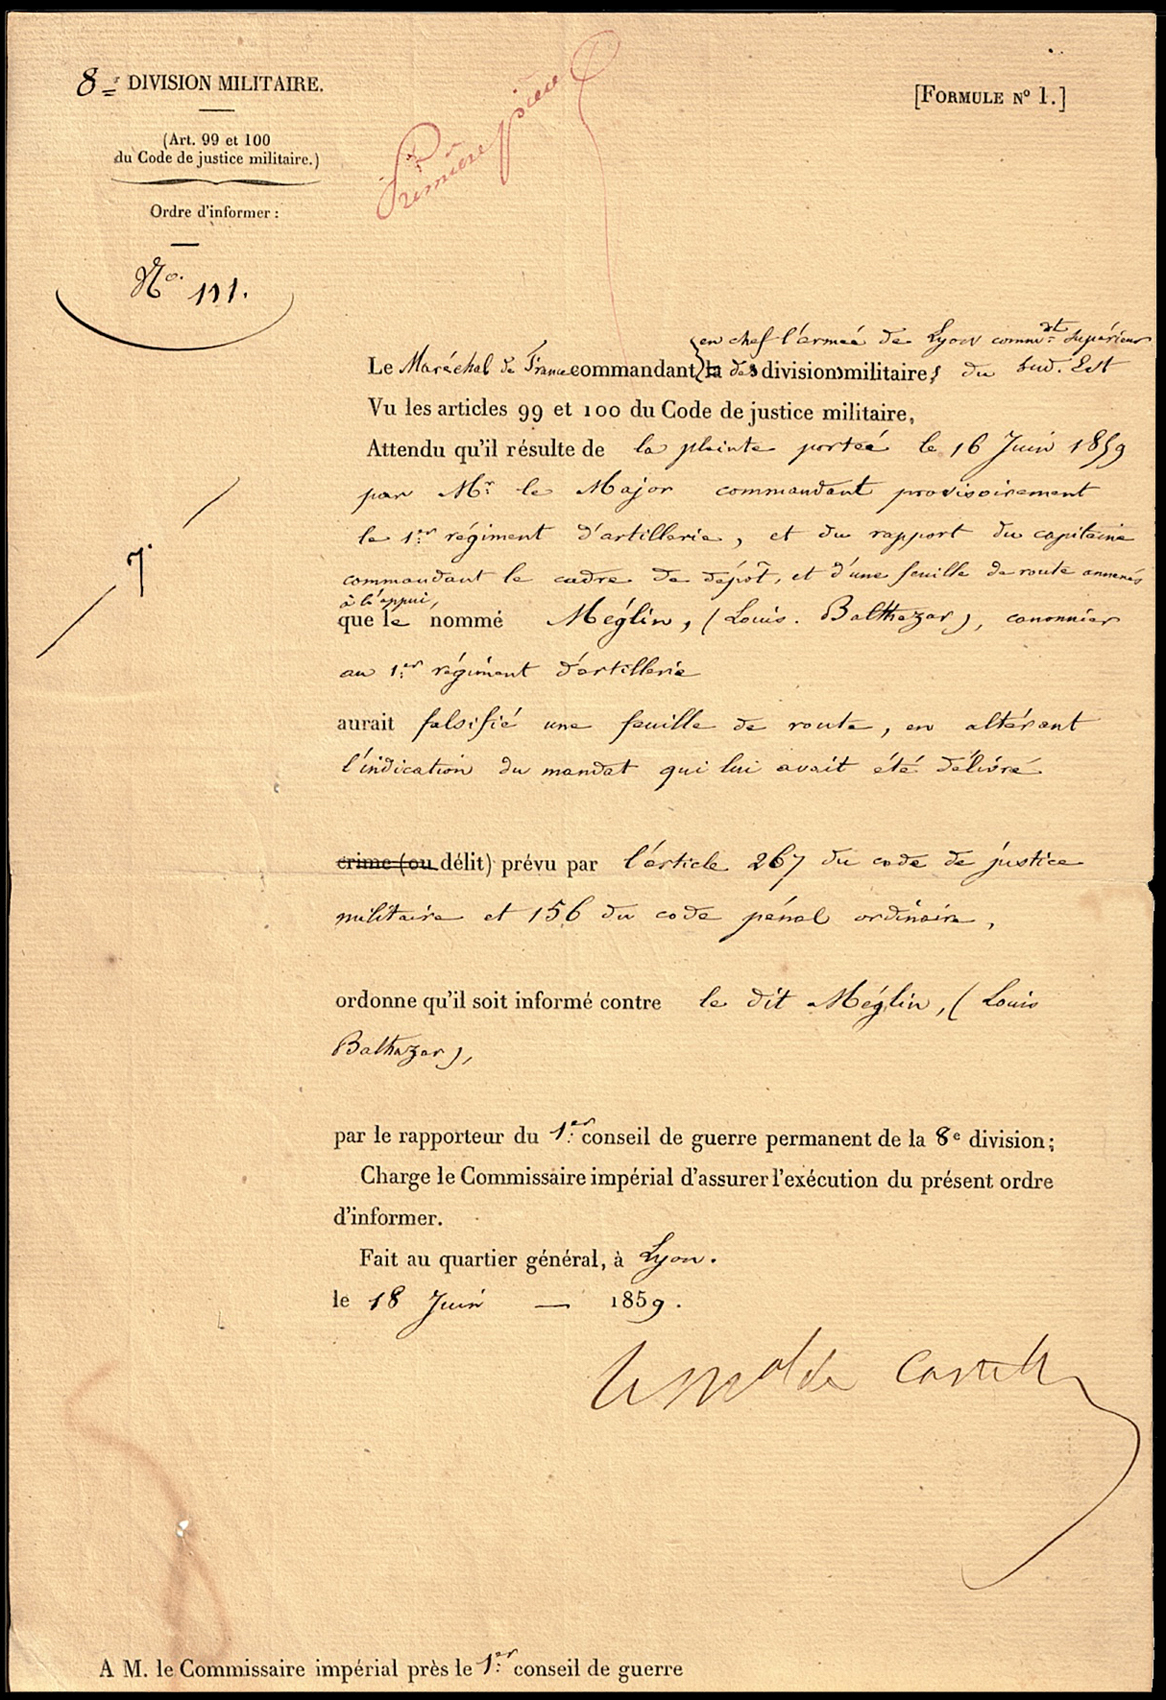 8e DIVISION MILITAIRE.
[FORMULE No 1.]
Première pièce
(Art. 99 et 100
du Code de justice militaire.)
Ordre d'informer :
No. 111.
en chef l'armée de Lyon commdt Supérieur
Le Maréchal de France commandant la des divisions militaires du Sud. Est
Vu les articles 99 et 100 du Code de justice militaire,
Attendu qu'il résulte de la plainte portée le 16 Juin 1859
par Mr le Major commandant provisoirement
le 1er régiment d'artillerie, et du rapport du capitaine
commandant le cadre de dépôt, et d'une feuille de route annexés
à l'appui,
que le nommé Méglin, (Louis. Balthazar), canonnier
au 1er régiment d'artillerie
aurait falsifié une feuille de route, en altérant
l'indication du mandat qui lui avait été délivré
crime (ou délit) prévu par l'article 267 du code de justice
militaire et 156 du code pénal ordinaire,
ordonne qu'il soit informé contre le dit Méglin, (Louis
Balthazar),
par le rapporteur du 1er conseil de guerre permanent de la 8e division;
Charge le Commissaire impérial d'assurer l'exécution du présent ordre
d'informer.
Fait au quartier général, à Lyon.
le 18 Juin — 1859.
le Mal de Castell
A M. le Commissaire impérial près le 1er conseil de guerre